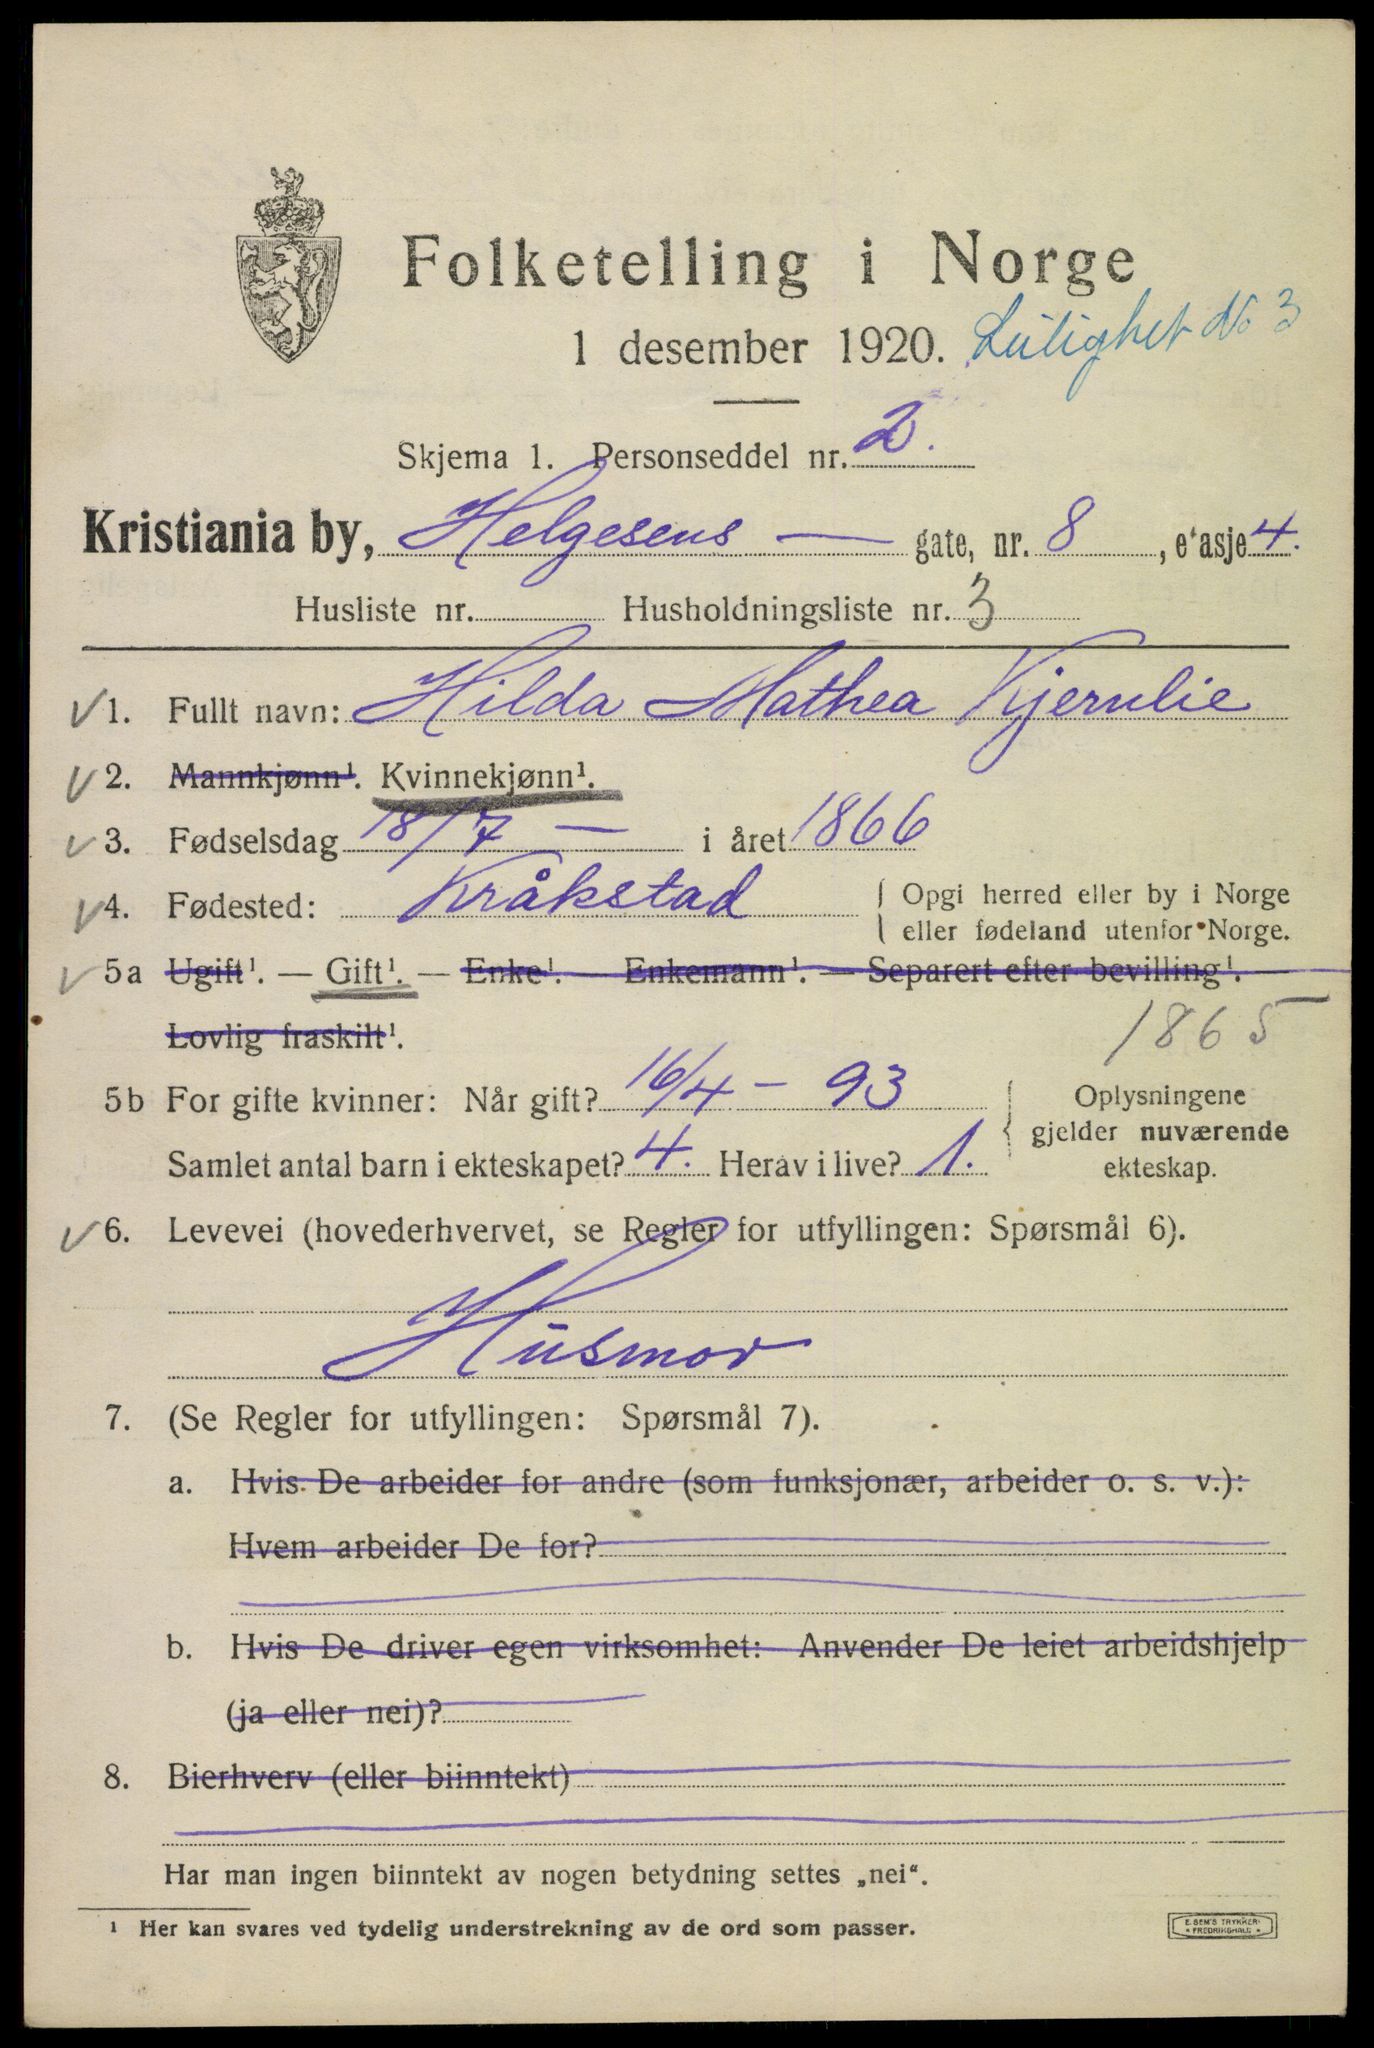 Folketelling i Norge
1 desember 1920. Leilighet No 3
Skjema 1. Personseddel nr. 2.
Kristiania by, Helgesens — gate, nr. 8, etasje 4.
Husliste nr. Husholdningsliste nr. 3
✓ 1. Fullt navn: Hilda Mathea Kjernlie
✓ 2. Mannkjønn¹. Kvinnekjønn¹.
✓ 3. Fødselsdag 18/7 — i året 1866
✓ 4. Fødested: Kråkstad { Opgi herred eller by i Norge
eller fødeland utenfor Norge.
✓ 5a Ugift¹. — Gift¹. — Enke¹. — Enkemann¹. — Separert efter bevilling¹. —
Lovlig fraskilt¹. 1865
5b For gifte kvinner: Når gift? 16/4 – 93 { Oplysningene
gjelder nuværende
Samlet antal barn i ekteskapet? 4. Herav i live? 1. ekteskap.
✓ 6. Levevei (hovederhvervet, se Regler for utfyllingen: Spørsmål 6).
Husmor
7. (Se Regler for utfyllingen: Spørsmål 7).
a. Hvis De arbeider for andre (som funksjonær, arbeider o. s. v.):
Hvem arbeider De for?
b. Hvis De driver egen virksomhet: Anvender De leiet arbeidshjelp
(ja eller nei)?
8. Bierhverv (eller biinntekt)
Har man ingen biinntekt av nogen betydning settes „nei“.
¹ Her kan svares ved tydelig understrekning av de ord som passer.
E. SEM'S TRYKKERI
FREDRIKSHALD